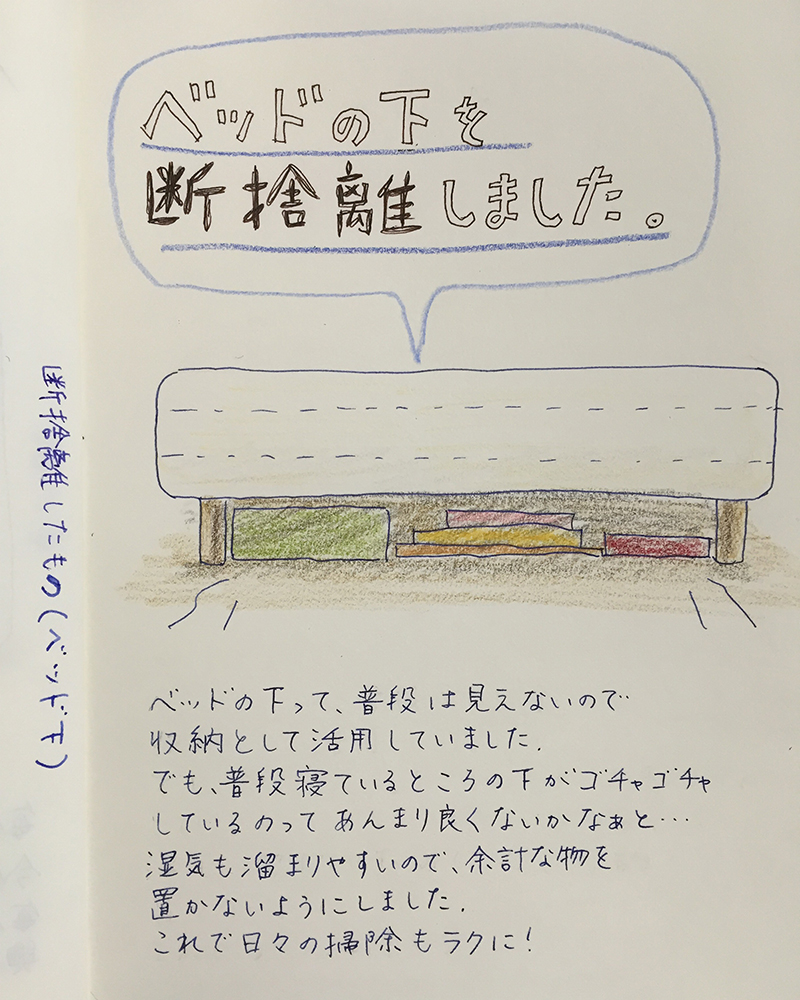 ベッドの下を
断捨離しました。
断捨離したもの(ベッド下)
ベッドの下って、普段は見えないので
収納として活用していました.
でも、普段寝ているところの下がゴチャゴチャ
しているのってあんまり良くないかなぁと…
湿気も溜まりやすいので、余計な物を
置かないようにしました.
これで日々の掃除もラクに!